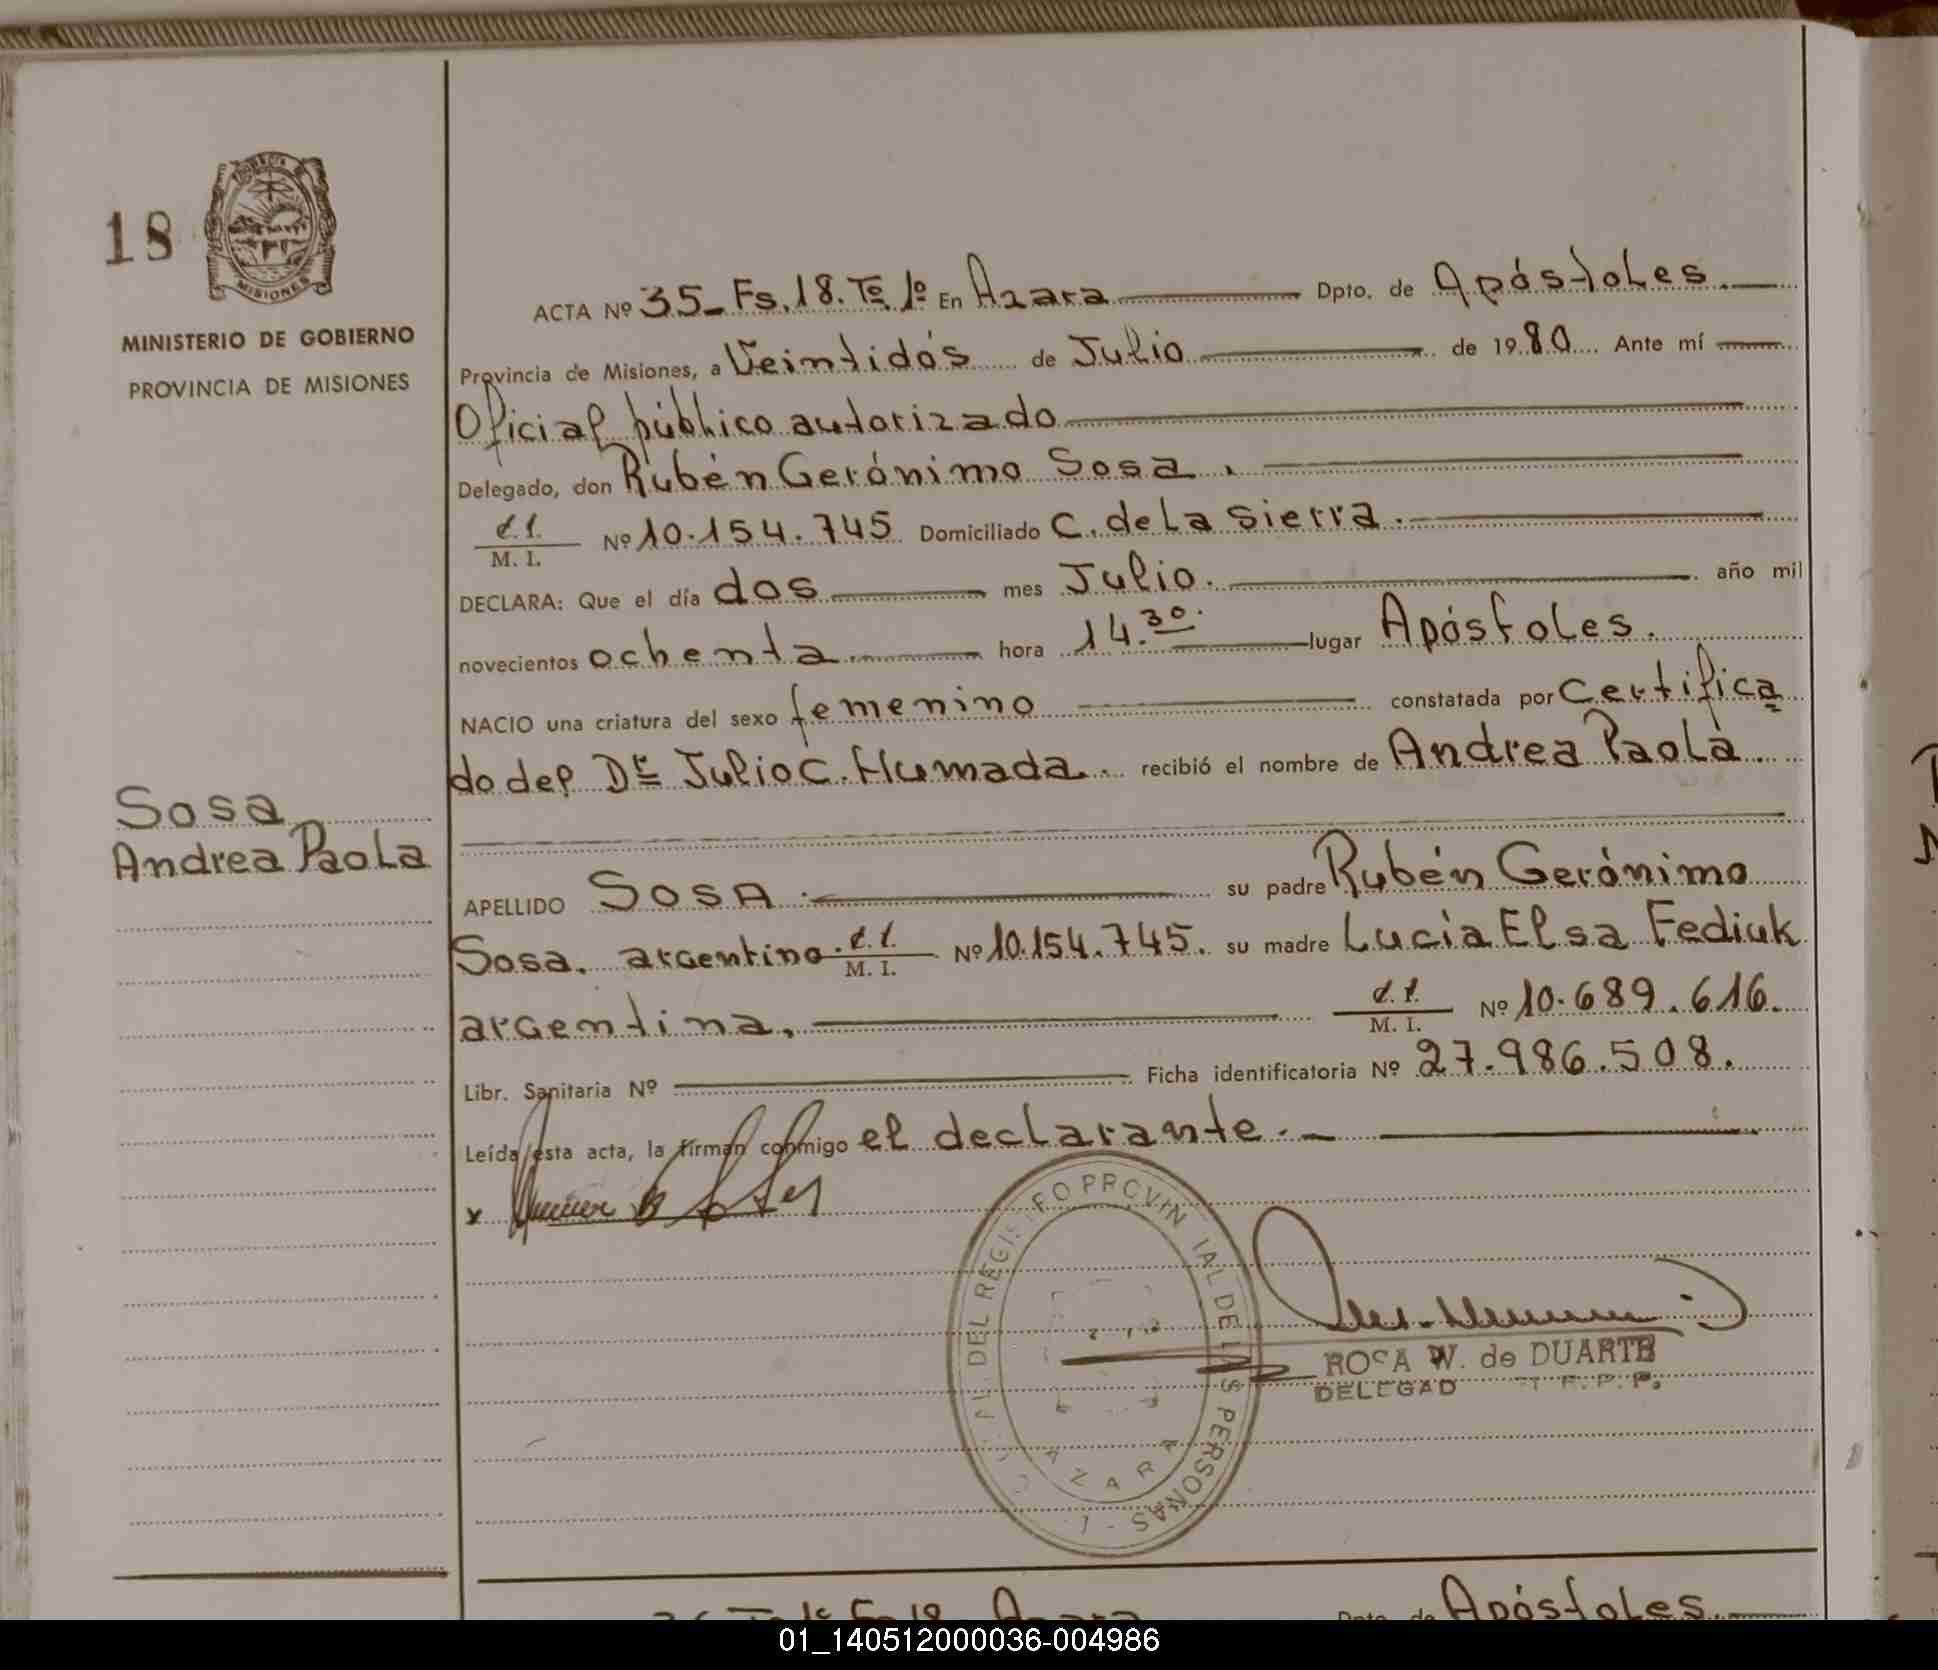 18
MISIONES
MINISTERIO DE GOBIERNO
PROVINCIA DE MISIONES
Sosa
Andrea Paola
ACTA Nº 35_ Fs. 18. Tº. 1º En Azara Dpto. de Apóstoles.
Provincia de Misiones, a Veintidós de Julio de 1980 Ante mí
Oficial público autorizado
Delegado, don Rubén Gerónimo Sosa.
M. I. Nº 10.154.745 Domiciliado C. de La Sierra.
DECLARA: Que el día dos mes Julio. año mil
novecientos ochenta hora 14.30. lugar Apóstoles.
NACIO una criatura del sexo femenino constatada por Certifica
do del Dr Julio C. Humada. recibió el nombre de Andrea Paola
APELLIDO SOSA. su padre Rubén Gerónimo
Sosa. argentino. M. I. Nº 10.154.745. su madre Lucía Elsa Fediuk
argentina, M. I. Nº 10.689.616.
Libr. Sanitaria Nº Ficha identificatoria Nº 27.986.508.
Leída esta acta, la firman conmigo el declarante.
x
DEL REGISTRO PROVINCIAL DE LAS PERSONAS
AZARA
ROSA W. de DUARTE
DELEGAD R. P. P.
Azara Dpto. de Apóstoles.
01_140512000036-004986